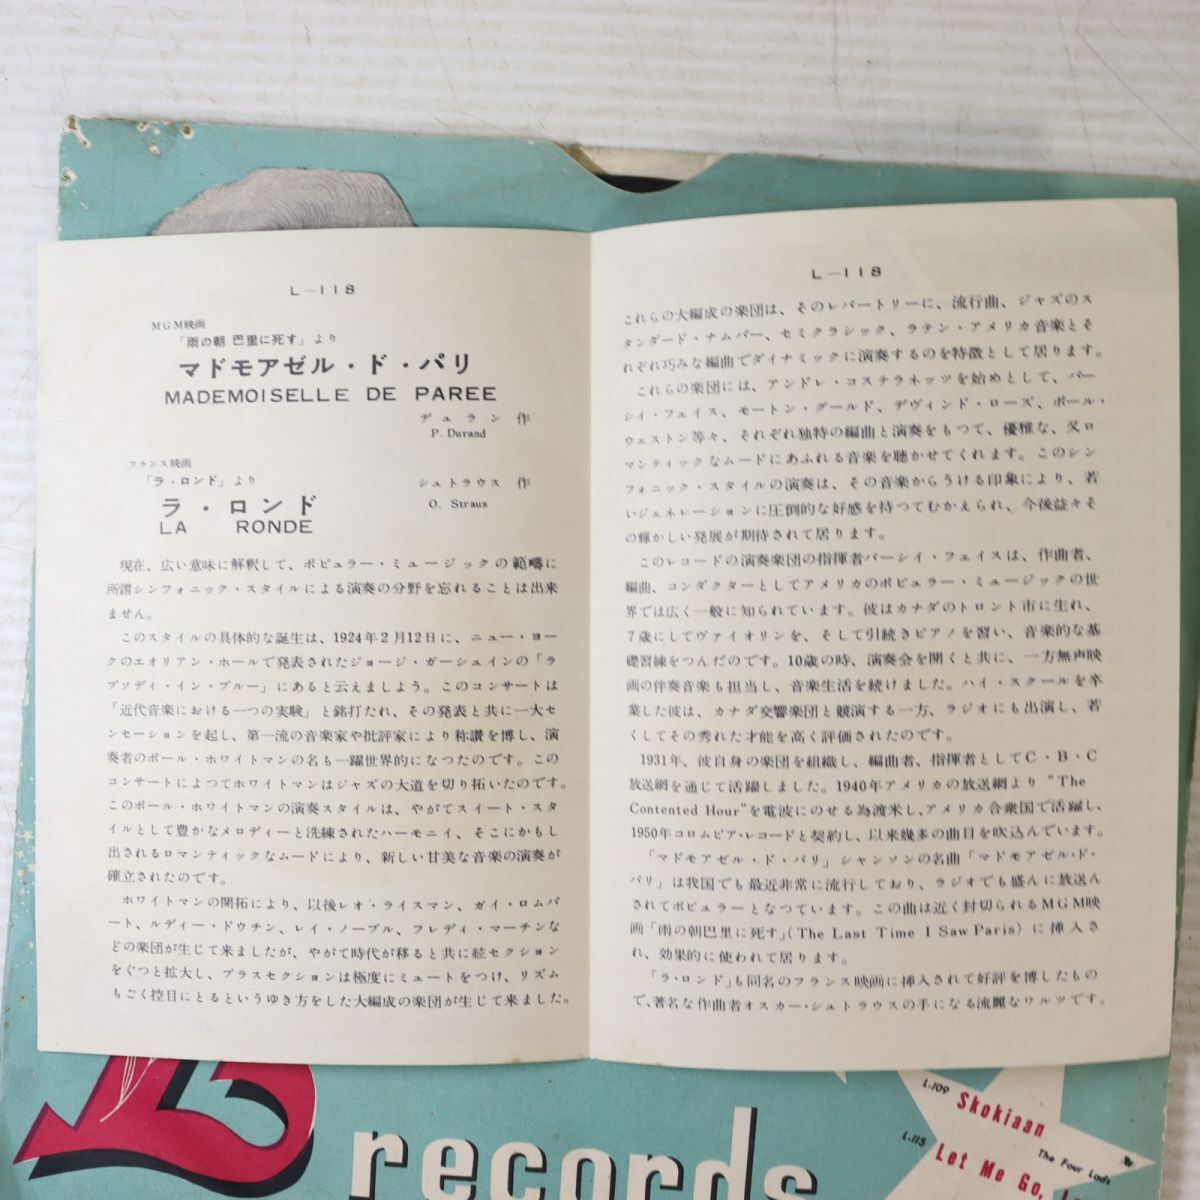 L—118
MGM映画
「雨の朝 巴里に死す」より
マドモアゼル・ド・パリ
MADEMOISELLE DE PAREE
デュラン 作
P. Durand
フランス映画
「ラ・ロンド」より
シュトラウス 作
ラ・ロンド
O. Straus
LA RONDE
現在、広い意味に解釈して、ポピュラー・ミュージックの範疇に
所謂シンフォニック・スタイルによる演奏の分野を忘れることは出来
ません。
このスタイルの具体的な誕生は、1924年2月12日に、ニュー・ヨー
クのエオリアン・ホールで発表されたジョージ・ガーシュインの「ラ
プソディ・イン・ブルー」にあると云えましよう。このコンサートは
「近代音楽における一つの実験」と銘打たれ、その発表と共に一大セ
ンセーションを起し、第一流の音楽家や批評家により称讃を博し、演
奏者のポール・ホワイトマンの名も一躍世界的になつたのです。この
コンサートによつてホワイトマンはジャズの大道を切り拓いたのです。
このポール・ホワイトマンの演奏スタイルは、やがてスイート・スタ
イルとして豊かなメロディーと洗練されたハーモニイ、そこにかもし
出されるロマンティックなムードにより、新しい甘美な音楽の演奏が
確立されたのです。
ホワイトマンの開拓により、以後レオ・ライスマン、ガイ・ロムバ
ート、ルディー・ドウチン、レイ・ノーブル、フレディ・マーチンな
どの楽団が生じて来ましたが、やがて時代が移ると共に絃セクション
をぐつと拡大し、ブラスセクションは極度にミュートをつけ、リズム
もごく控目にとるというゆき方をした大編成の楽団が生じて来ました。
L—118
これらの大編成の楽団は、そのレパートリーに、流行曲、ジャズのス
タンダード・ナムバー、セミクラシック、ラテン・アメリカ音楽とそ
れぞれ巧みな編曲でダイナミックに演奏するのを特徴として居ります。
これらの楽団には、アンドレ・コステラネッツを始めとして、パー
シイ・フェイス、モートン・グールド、デヴィンド・ローズ、ポール・
ウェストン等々、それぞれ独特の編曲と演奏をもつて、優雅な、又ロ
マンティックなムードにあふれる音楽を聴かせてくれます。このシン
フォニック・スタイルの演奏は、その音楽からうける印象により、若
いジェネレーションに圧倒的な好感を持つてむかえられ、今後益々そ
の輝かしい発展が期待されて居ります。
このレコードの演奏楽団の指揮者パーシイ・フェイスは、作曲者、
編曲、コンダクターとしてアメリカのポピュラー・ミュージックの世
界では広く一般に知られています。彼はカナダのトロント市に生れ、
7歳にしてヴァイオリンを、そして引続きピアノを習い、音楽的な基
礎習練をつんだのです。10歳の時、演奏会を開くと共に、一方無声映
画の伴奏音楽も担当し、音楽生活を続けました。ハイ・スクールを卒
業した彼は、カナダ交響楽団と競演する一方、ラジオにも出演し、若
くしてその秀れた才能を高く評価されたのです。
1931年、彼自身の楽団を組織し、編曲者、指揮者としてC・B・C
放送網を通じて活躍しました。1940年アメリカの放送網より “The
Contented Hour”を電波にのせる為渡米し、アメリカ合衆国で活躍し、
1950年コロムビア・レコードと契約し、以来幾多の曲目を吹込んでいます。
「マドモアゼル・ド・パリ」シャンソンの名曲「マドモアゼル・ド・
パリ」は我国でも最近非常に流行しており、ラジオでも盛んに放送ん
されてポピュラーとなつています。この曲は近く封切られるMGM映
画「雨の朝巴里に死す」(The Last Time I Saw Paris) に挿入さ
れ、効果的に使われて居ります。
「ラ・ロンド」も同名のフランス映画に挿入されて好評を博したもの
で、著名な作曲者オスカー・シュトラウスの手になる流麗なワルツです。
records
L.109 Skokiaan
The Four Lads
L.115 Let Me Go,